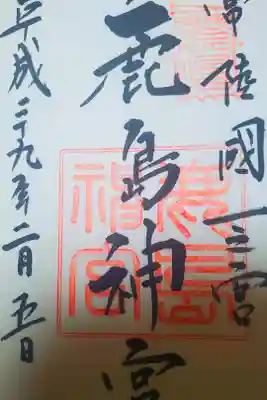 常陸國一之宮
鹿島神宮
平成二十九年二月五日
鹿島神宮